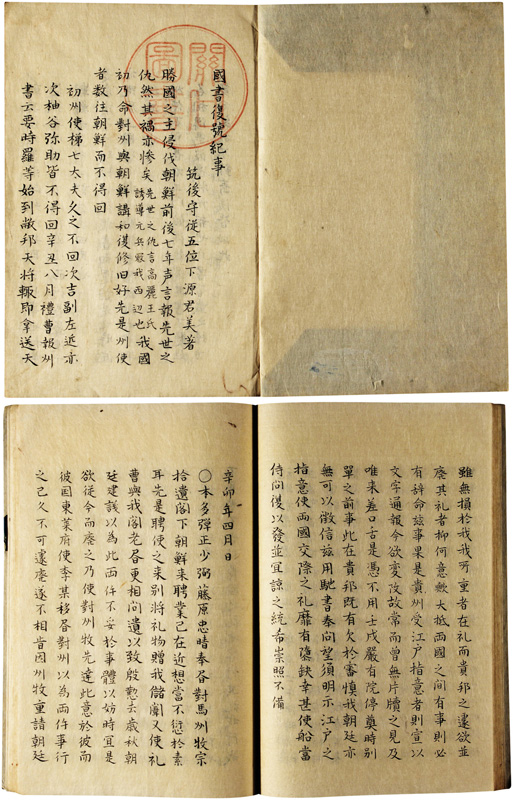 國書復號紀事
筑後守從五位下源君美著
勝國之主侵伐朝鮮前後七年声言報先世之
仇然其禍亦慘矣先世之仇言高麗王氏誘導元兵寇我西辺也我國
初乃命對州與朝鮮講和復修旧好先是州使
者数往朝鮮而不得回
初州使梯七大夫久之不回次吉副左近亦
次柚谷弥助皆不得回辛丑八月禮曹報州
書云要時羅等始到敝邦天将輙即拿送天
雖無損於我我所重者在礼而貴邦之遽欲並
廃其礼者抑何意歟大抵両國之间有事則必
有辞命玆事果是貴州受江戸指意者則宣以
文字通報今欲変改故常而曾無片牘之見及
唯来差口舌是憑不用壬戌嚴有院停奠時别
單之前事此在貴邦既有欠於審慎我朝廷亦
無可以徴信玆用馳書奉问望須明示江戸之
指意使両國交際之礼靡有隳缺幸甚使船當
待回復以發並宜諒之統希崇照不備
辛卯年四月日
○本多弾正少弼藤原忠晴奉答對馬州牧宗
拾遺閣下朝鮮来聘業已在近想當不愆於素
耳先是聘使之来别将礼物贈我儲副又使礼
曹與我閣老各更相问遺以致慇懃去歳秋朝
廷建議以為此両件不妥於事體以妨時宜是
欲從今而廃之乃使對州牧先達此意於彼而
彼国東莱府使李某移咨對州以為両件事行
之已久不可遽廃遂不相肯因州牧重請朝廷